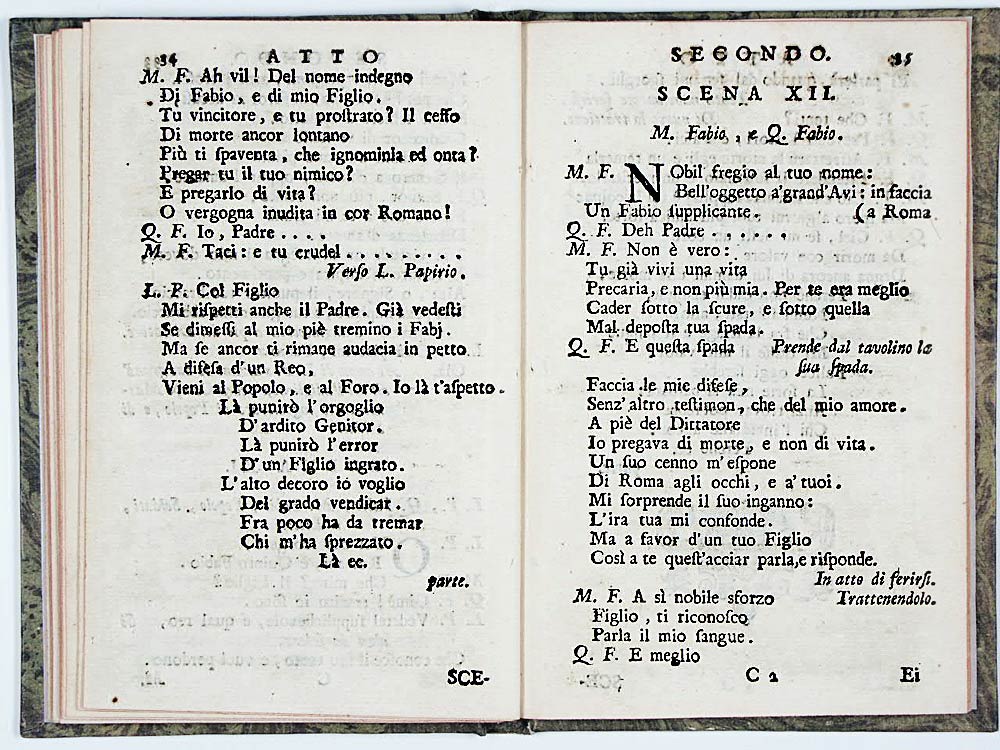 34 ATTO
M. F. Ah vil! Del nome indegno
Di Fabio, e di mio Figlio.
Tu vincitore, e tu proſtrato? Il ceffo
Di morte ancor lontano
Più ti ſpaventa, che ignominia ed onta?
Pregar tu il tuo nimico?
E pregarlo di vita?
O vergogna inudita in cor Romano!
Q. F. Io, Padre . . . .
M. F. Taci: e tu crudel . . . . . . . . .
Verſo L. Papirio.
L. P. Col Figlio
Mi riſpetti anche il Padre. Già vedeſti
Se dimeſſi al mio piè tremino i Fabj.
Ma ſe ancor ti rimane audacia in petto
A difeſa d'un Reo,
Vieni al Popolo, e al Foro. Io là t'aſpetto.
Là punirò l'orgoglio
D'ardito Genitor.
Là punirò l'error
D'un Figlio ingrato.
L'alto decoro io voglio
Del grado vendicar.
Fra poco ha da tremar
Chi m'ha ſprezzato.
Là ec.
parte.
SCE-
SECONDO. 35
SCENA XII.
M. Fabio, e Q. Fabio.
M. F. NObil fregio al tuo nome:
Bell'oggetto a'grand'Avi: in faccia
Un Fabio ſupplicante. (a Roma
Q. F. Deh Padre . . . . . .
M. F. Non è vero:
Tu già vivi una vita
Precaria, e non più mia. Per te era meglio
Cader ſotto la ſcure, e ſotto quella
Mal depoſta tua ſpada.
Q. F. E queſta ſpada Prende dal tavolino la
ſua ſpada.
Faccia le mie difeſe,
Senz'altro teſtimon, che del mio amore.
A piè del Dittatore
Io pregava di morte, e non di vita.
Un ſuo cenno m'eſpone
Di Roma agli occhi, e a' tuoi.
Mi ſorprende il ſuo inganno:
L'ira tua mi confonde.
Ma a favor d'un tuo Figlio
Così a te queſt'acciar parla, e riſponde.
In atto di ferirſi.
M. F. A sì nobile sforzo Trattenendolo.
Figlio, ti riconoſco
Parla il mio ſangue.
Q. F. E meglio
C 2 Ei